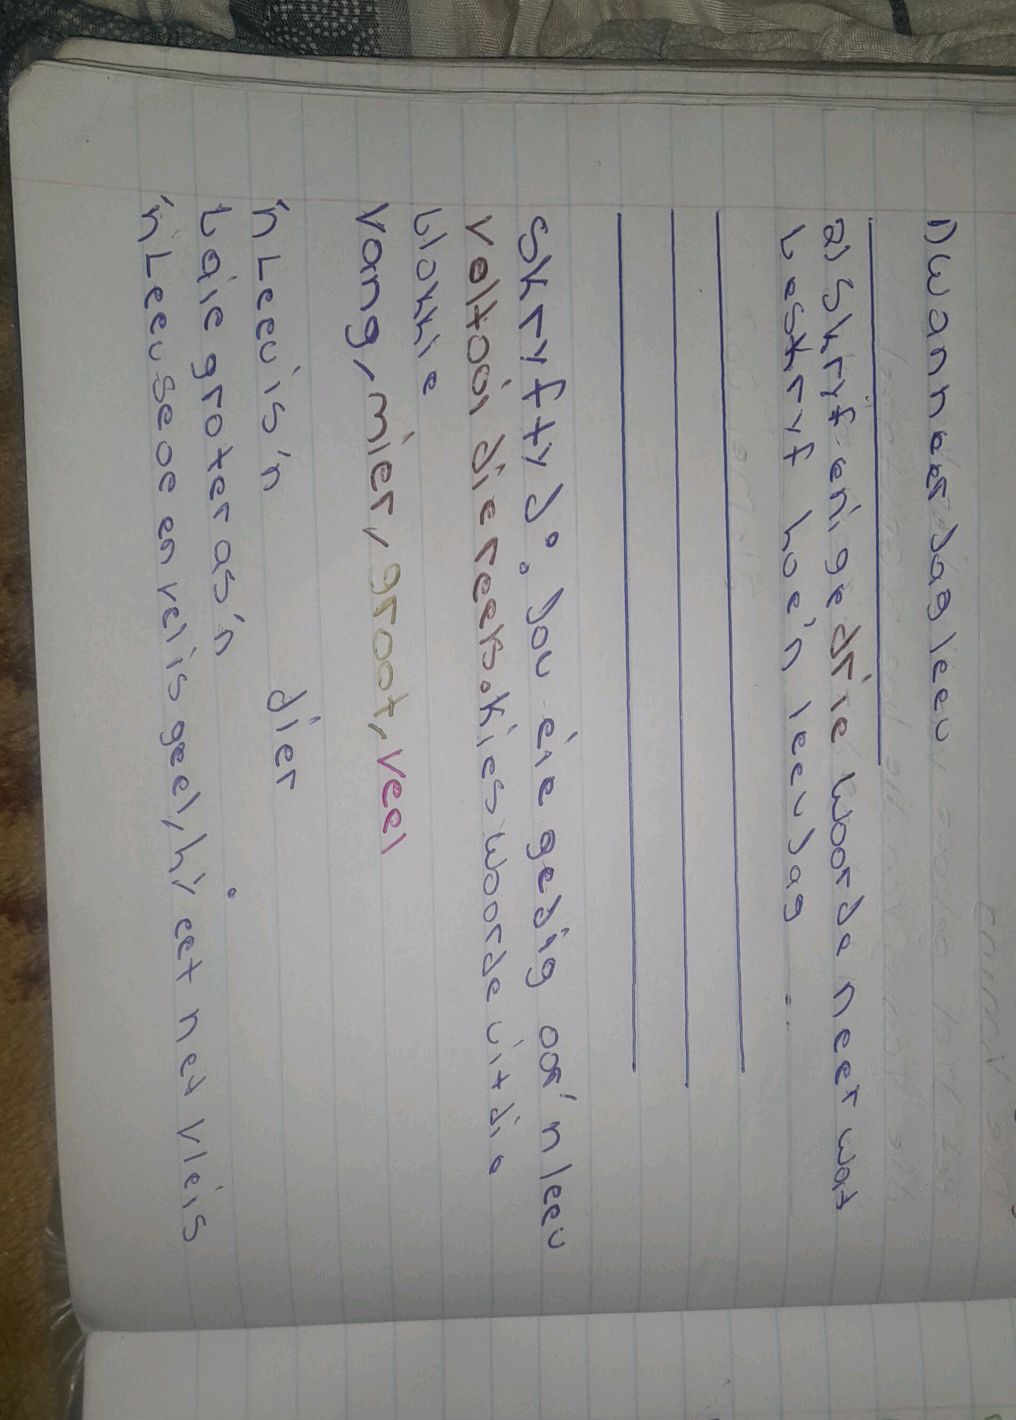 1) Wanneer jag leeu
2) Skryf enige drie woorde neer wat
beskryf hoe 'n leeu jag
Skryftyd: Jou eie gedig oor 'n leeu
voltooi die reëls. Kies woorde uit die
blokkie
vang, mier, groot, veel
'n Leeu is 'n dier
baie groter as 'n .
'n Leeu se oe en vel is geel, hy eet net vleis